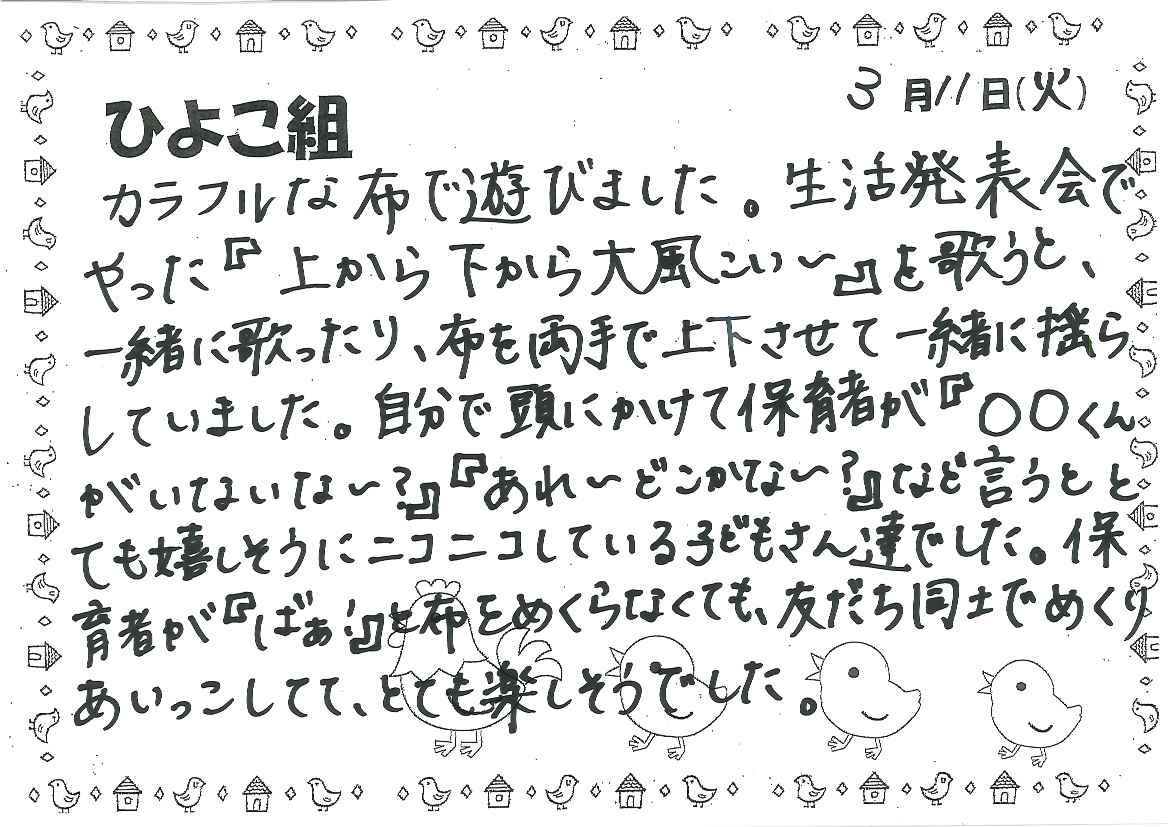 3月11日(火)
ひよこ組
カラフルな布で遊びました。生活発表会で
やった『上から下から大風こい～』を歌うと、
一緒に歌ったり、布を両手で上下させて一緒に揺ら
していました。自分で頭にかけて保育者が『〇〇くん
がいないいな～?』『あれ～どこかな～?』など言うとと
ても嬉しそうにニコニコしている子どもさん達でした。保
育者が『ばぁ!』と布をめくらなくても、友だち同士でめくり
あいっこしてて、とても楽しそうでした。